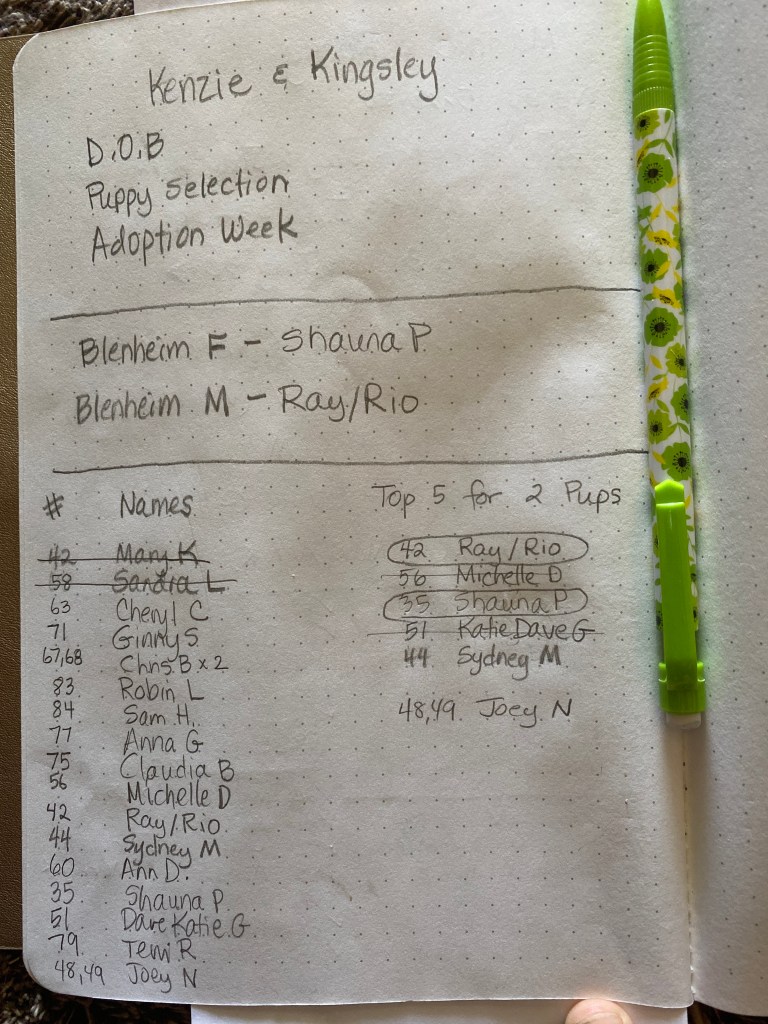 Kenzie & Kingsley
D.O.B
Puppy Selection
Adoption Week
Blenheim F - Shauna P.
Blenheim M - Ray/Rio
# Names
42 Mary K
58 Sandra L
63 Cheryl C
71 Ginny S
67,68 Chris B x 2
83 Robin L
84 Sam H.
77 Anna G
75 Claudia B
56 Michelle D
42 Ray/Rio
44 Sydney M
60 Ann D.
35 Shauna P.
51 Dave Katie G.
79 Terri R
48,49 Joey N
Top 5 for 2 Pups
42 Ray/Rio
56 Michelle D
35 Shauna P.
51 Katie Dave G
44 Sydney M
48,49 Joey N